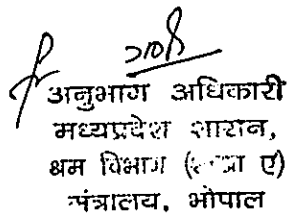 अनुभाग अधिकारी
मध्यप्रदेश शासन,
श्रम विभाग ( ए)
मंत्रालय, भोपाल